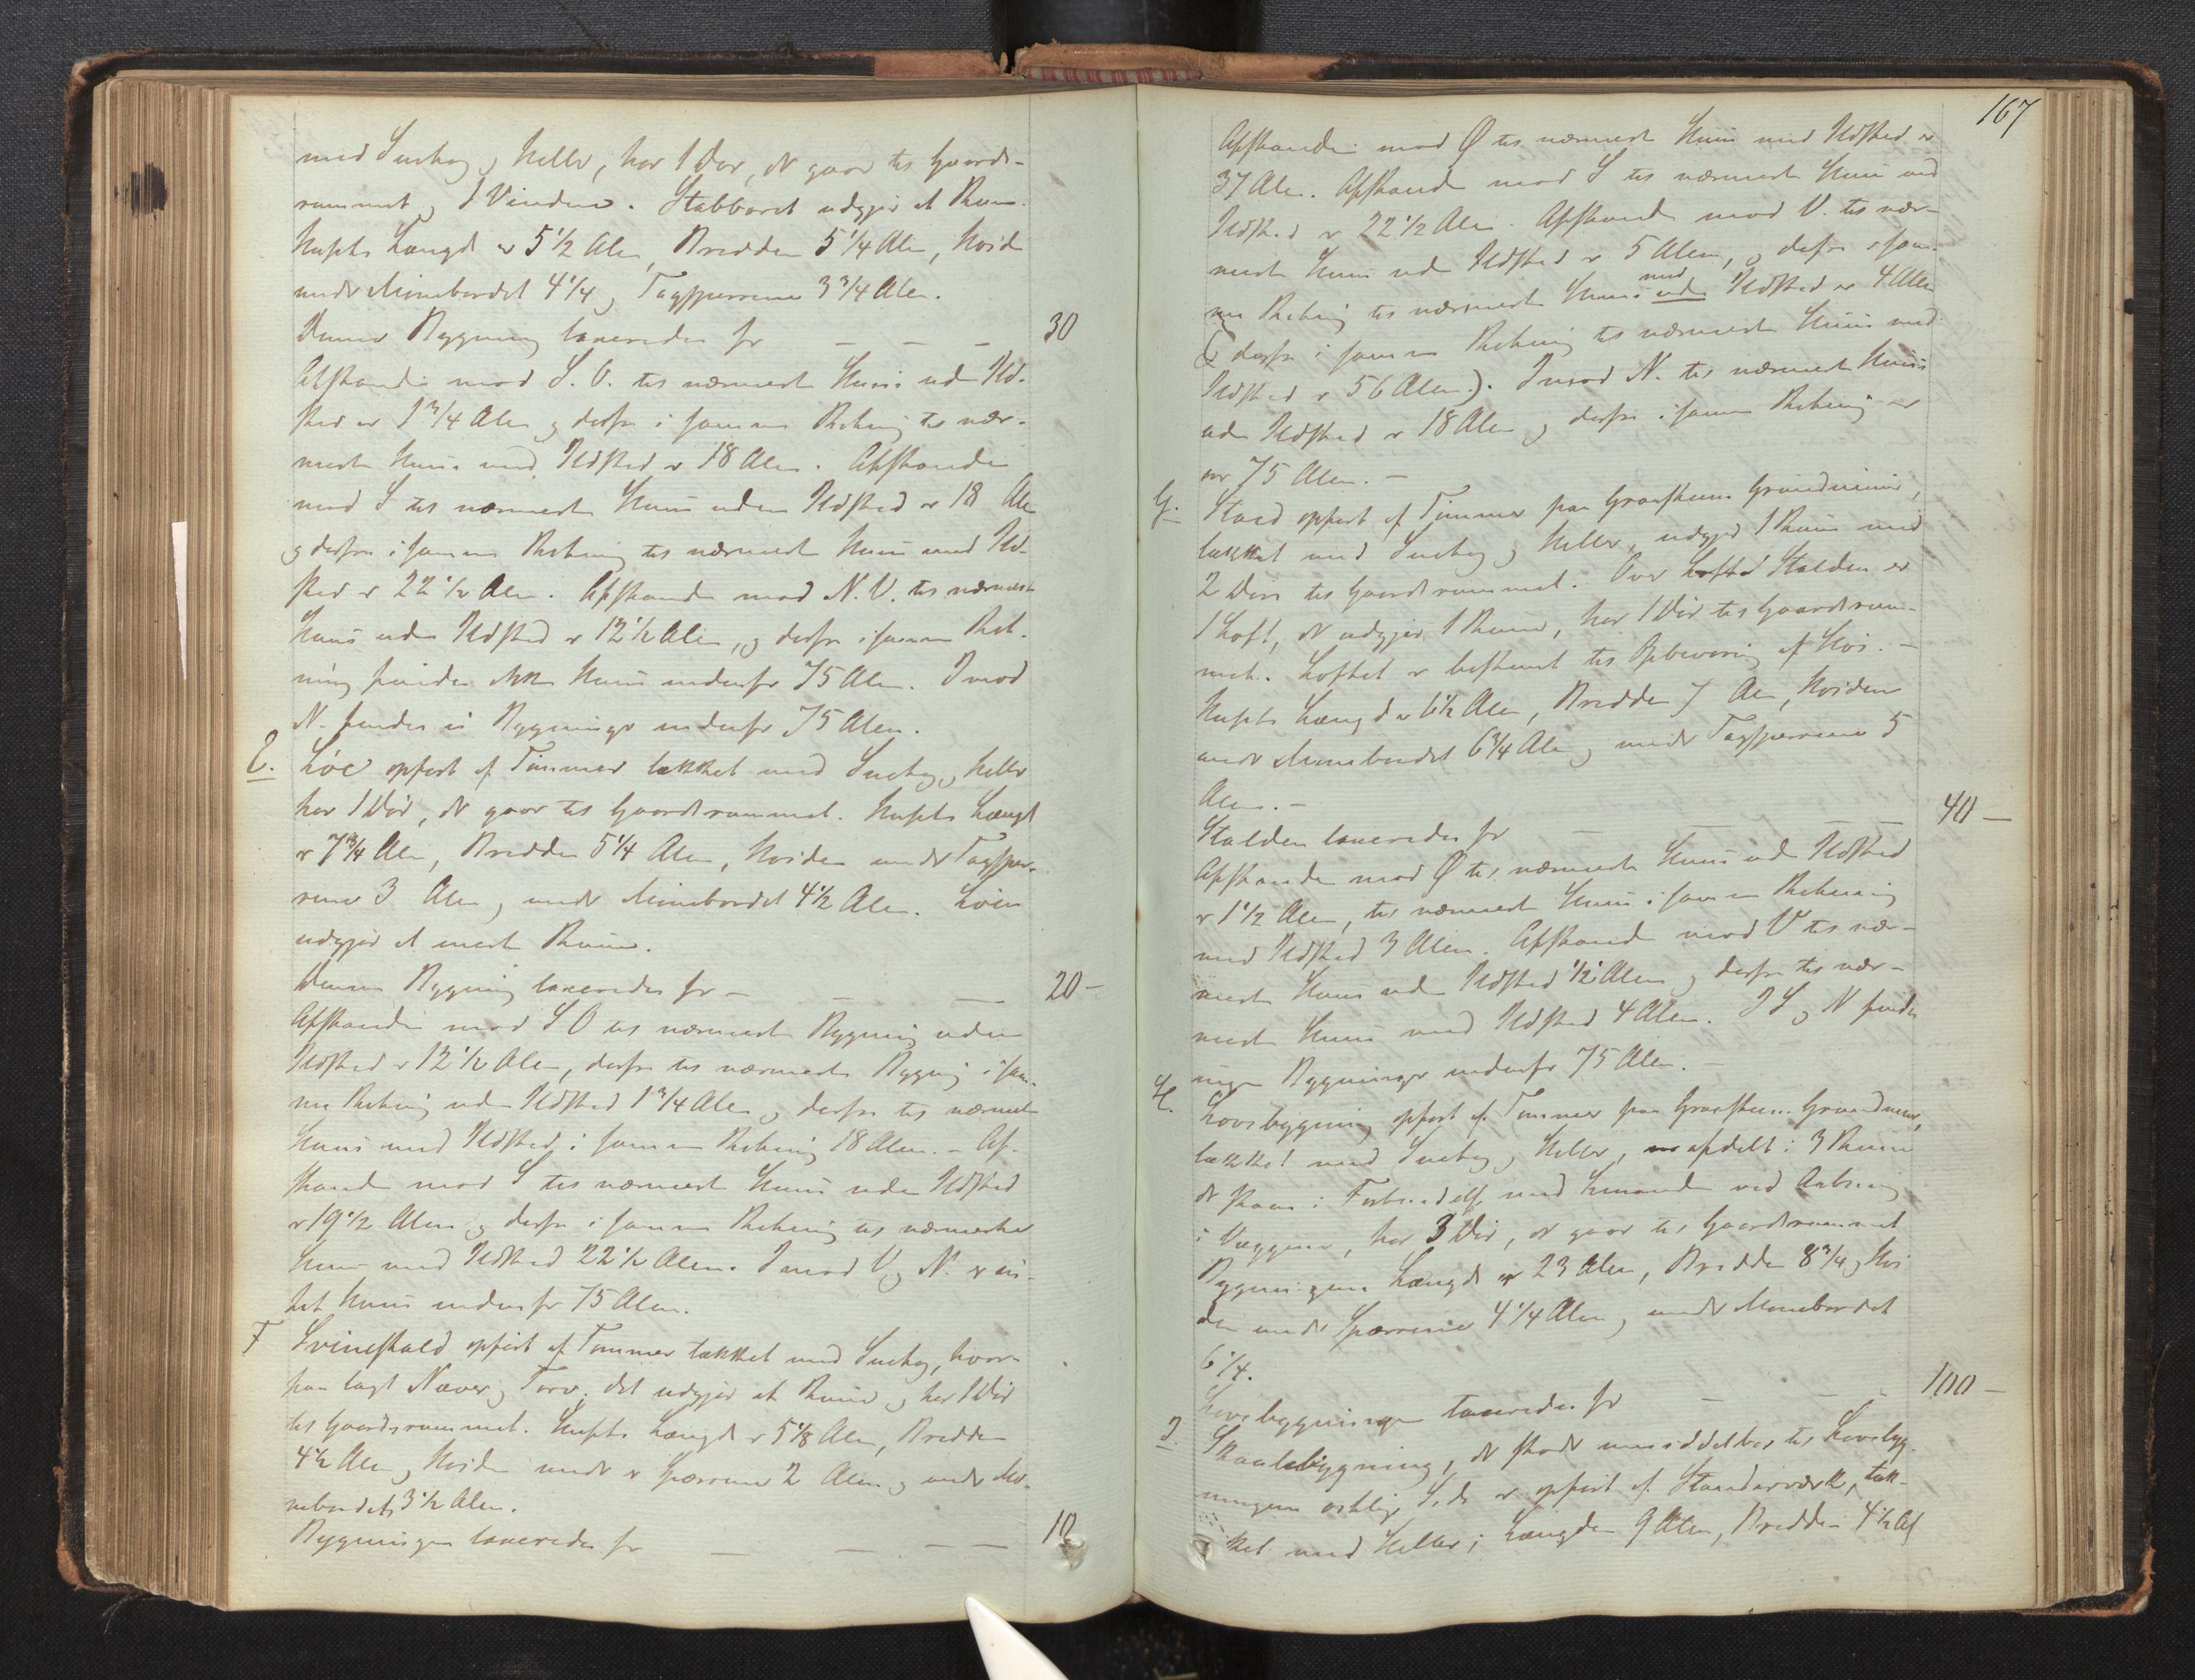 med Sutag og Heller, har 1 Dør, der gaar til Gaards-
rummet og 1 Vindue. Stabburet udgjør et Rum.
Husets Længde er 5 1/2 Alen, Bredden 5 1/4 Alen, Høide
under Mønebordet 4 1/4 og Tagsperrene 3 3/4 Alen.
Denne Bygning taxeredes for — — — 30
Afstanden mod S.O. til nærmeste Huus uden Ild-
sted er 1 3/4 Alen og derfra i samme Retning til nær-
meste Huus med Ildsted er 18 Alen. Afstanden
mod S til nærmeste Huus uden Ildsted er 18 Alen
og derfra i samme Retning til nærmeste Huus med Ild-
sted er 22 1/2 Alen. Afstanden mod N.V. til nærmeste
Huus uden Ildsted er 12 1/2 Alen, og derfra i samme Ret-
ning findes ikke Huus indenfor 75 Alen. Imod
N. findes ei Bygninger indenfor 75 Alen.
E. Løe opført af Tømmer tækket med Sutag og Heller
har 1 Dør, der gaar til Gaardsrummet. Husets Længde
er 7 3/4 Alen, Bredden 5 1/4 Alen, Høiden under Tagsper-
rene 3 Alen og under Mønebordet 4 1/2 Alen. Løen
udgjør et Rum.
Denne Bygning taxeredes for — — — 20 —
Afstanden mod S O til nærmeste Bygning uden
Ildsted er 12 1/2 Alen, derfra til nærmeste Bygning i sam-
me Retning uden Ildsted 1 3/4 Alen og derfra til nærmeste
Huus med Ildsted i samme Retning 18 Alen. - Af-
standen mod S til nærmeste Huus uden Ildsted
er 19 1/2 Alen og derfra i samme Retning til nærmeste
Huus med Ildsted 22 1/2 Alen. Imod V og N. er in-
tet Huus indenfor 75 Alen.
F Svinestald opført af Tømmer tækket med Sutag, hvor-
paa lagt Næver og Torv; det udgjør et Rum og har 1 Dør
til Gaardsrummet. Husets Længde er 5 1/8 Alen, Bredden
4 1/2 Alen og Høiden under Sperrene 2 Alen og under Mø-
nebordet 3 1/2 Alen.
Bygningen taxeredes for — — — — 10
167
Afstanden mod Ø til nærmeste Huus med Ildsted er
37 Alen. Afstanden mod S til nærmeste Huus med
Ildsted er 22 1/2 Alen. Afstanden mod V. til nær-
meste Huus uden Ildsted er 5 Alen, og derfra i sam-
med
me Retning til nærmeste Huus uden Ildsted er 4 Alen
(og derfra i samme Retning til nærmeste Huus med
Ildsted er 56 Alen). Imod N. til nærmeste Huus
uden Ildsted er 18 Alen og derfra i samme Retning er
over 75 Alen. —
G. Stald opført af Tømmer paa Graasteens Grundmuur,
tækket med Sutag og Heller, udgjør 1 Rum med
2 Døre til Gaardsrummet. Over Stalden er
1 Loft, der udgjør 1 Rum, har 1 Dør til Gaardsrum-
met. Loftet er bestemt til Opbevaring af Høi. —
Husets Længde er 6 1/2 Alen, Bredden 7 Alen, Høiden
under Mønebordet 6 3/4 Alen og under Tagsperrene 5
Alen. —
Stalden taxeredes for — — — — 40 —
Afstanden mod Ø til nærmeste Huus uden Ildsted
er 1 1/2 Alen, til nærmeste Huus i samme Retning
med Ildsted 3 Alen. Afstanden mod V til nær-
meste Huus uden Ildsted 1/2 Alen og derfra til nær-
meste Huus med Ildsted 4 Alen. I S og N findes
ingen Bygninger indenfor 75 Alen. —
H. Lovebygning opført af Tømmer paa Graasteens Grundmuur,
tækket med Sutag og Heller, er afdelt i 3 Rum
der staa i Forbindelse med hinanden ved Aabning
i Væggene, har 3 Dør, der gaar til Gaardsrummet
Bygningens Længde er 23 Alen, Bredden 8 3/4 og Høi
den under Sperrene 4 1/4 Alen og under Mønebordet
6 1/4.
Lovebygningen taxeredes for — — — 100 —
I. Skaalebygning, der støder umiddelbar til Lovebyg-
ningens østlige Side er opført af Standerværk, tæk-
ket med Heller; Længden 9 Alen, Bredden 4 1/2 Al